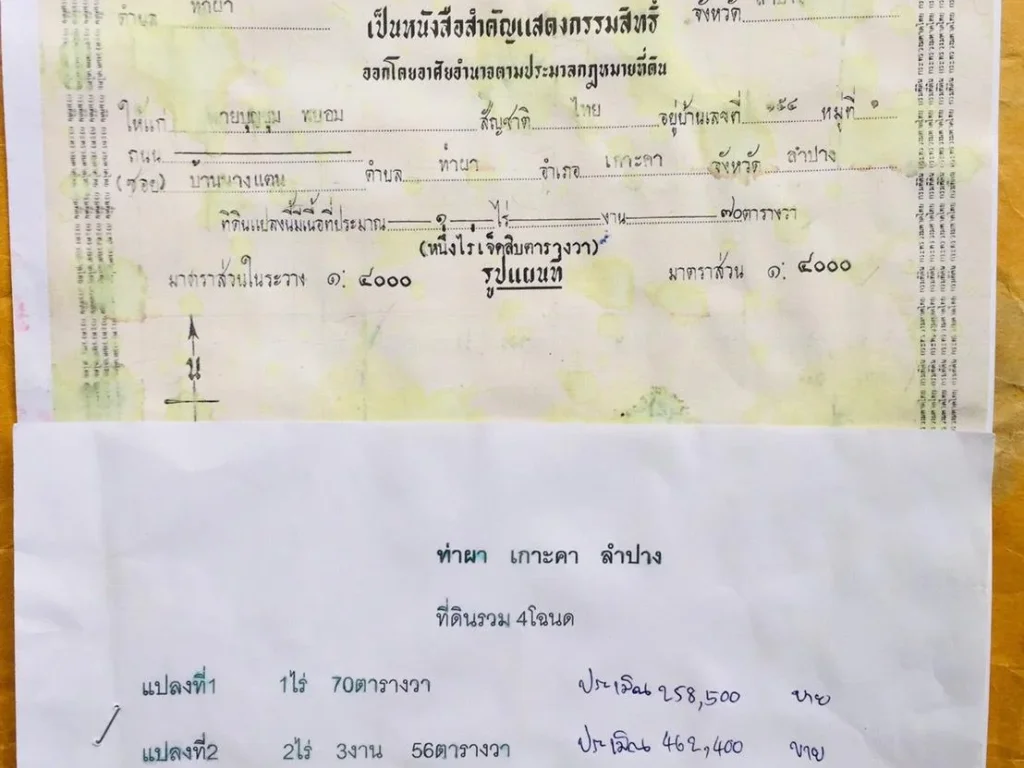 ตำบล ท่าผา จังหวัด ลำปาง
เป็นหนังสือสำคัญแสดงกรรมสิทธิ์
ออกโดยอาศัยอำนาจตามประมวลกฎหมายที่ดิน
ให้แก่ นายบุญชุม พยอม สัญชาติ ไทย อยู่บ้านเลขที่ ๑๕๔ หมู่ที่ ๑
ถนน
(ซอย) บ้านนางแตน ตำบล ท่าผา อำเภอ เกาะคา จังหวัด ลำปาง
ที่ดินแปลงนี้มีเนื้อที่ประมาณ ๑ ไร่ งาน ๗๐ ตารางวา
(หนึ่งไร่เจ็ดสิบตารางวา)
มาตราส่วนในระวาง ๑: ๔๐๐๐ รูปแผนที่ มาตราส่วน ๑: ๔๐๐๐
น
ท่าผา เกาะคา ลำปาง
ที่ดินรวม 4โฉนด
แปลงที่1 1ไร่ 70ตารางวา ประเมิน 258,500 ขาย
แปลงที่2 2ไร่ 3งาน 56ตารางวา ประเมิน 462,400 ขาย